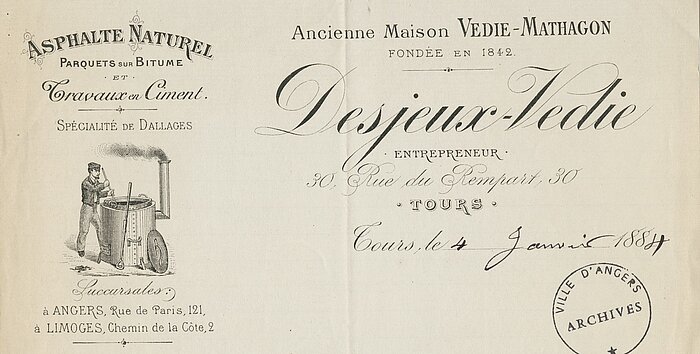 ASPHALTE NATUREL
PARQUETS SUR BITUME
· ET ·
Travaux en Ciment.
SPÉCIALITÉ DE DALLAGES
Succursales:
à ANGERS, Rue de Paris, 121,
à LIMOGES, Chemin de la Côte, 2
Ancienne Maison VEDIE-MATHAGON
FONDÉE EN 1842.
Desjeux-Vedie
· ENTREPRENEUR ·
30, Rue du Rempart, 30
· TOURS ·
Tours, le 4 Janvier 1884
VILLE D'ANGERS
ARCHIVES